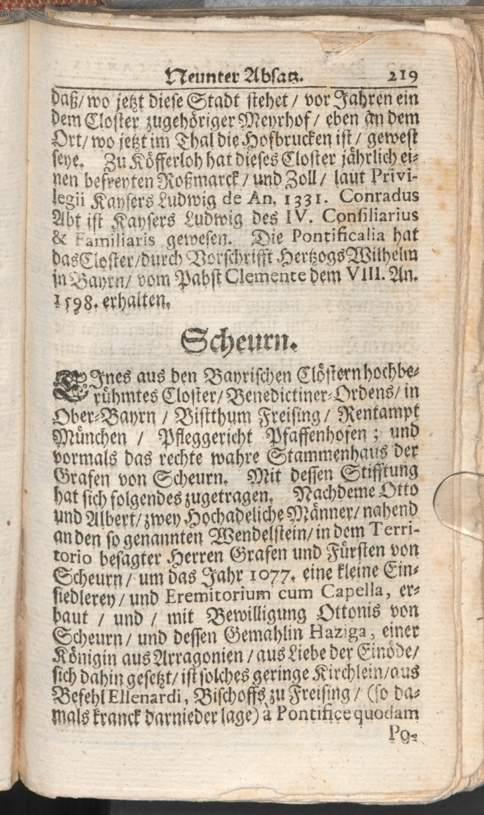 Neunter Absatz. 219
daß/ wo jetzt diese Stadt stehet / vor Jahren ein
dem Closter zugehöriger Meyrhof / eben an dem
Ort/ wo jetzt im Thal die Hofbrucken ist / gewest
seye. Zu Köfferloh hat dieses Closter jährlich ei-
nen befreyten Roßmarck / und Zoll / laut Privi-
legii Kaysers Ludwig de An. 1331. Conradus
Abt ist Kaysers Ludwig des IV. Consiliarius
& Familiaris gewesen. Die Pontificalia hat
das Closter/ durch Vorschrifft Hertzogs Wilhelm
in Bayrn/ vom Pabst Clemente dem VIII. An.
1598. erhalten.
Scheurn.
EInes aus den Bayrischen Clöstern hochbe-
rühmtes Closter/ Benedictiner-Ordens/ in
Ober-Bayrn / Bistthum Freising / Rentampt
München / Pfleggericht Pfaffenhofen ; und
vormals das rechte wahre Stammenhaus der
Grafen von Scheurn. Mit dessen Stifftung
hat sich folgendes zugetragen. Nachdeme Otto
und Albert/ zwey Hochadeliche Männer/ nahend
an den so genannten Wendelstein/ in dem Terri-
torio besagter Herren Grafen und Fürsten von
Scheurn / um das Jahr 1077. eine kleine Ein-
siedlerey / und Eremitorium cum Capella, er-
baut / und / mit Bewilligung Ottonis von
Scheurn / und dessen Gemahlin Haziga, einer
Königin aus Arragonien / aus Liebe der Einöde/
sich dahin gesetzt/ ist solches geringe Kirchlein/ aus
Befehl Ellenardi, Bischoffs zu Freising / (so da-
mals kranck darnieder lage) à Pontifice quodam
Pq-